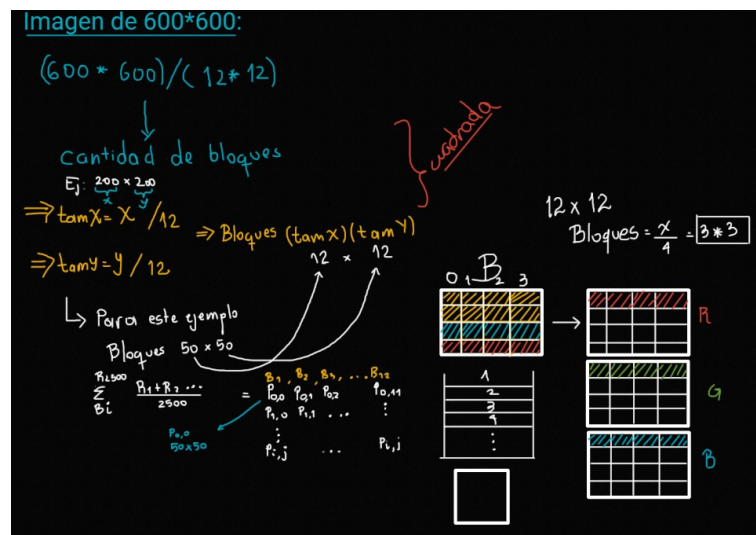 Imagen de 600*600:
(600 * 600)/( 12* 12)
cantidad de bloques
Ej: 200 x 200
x y
⇒ tamX = X /12
⇒ tamy = y / 12
⇒ Bloques (tamX)(tamY)
12 x 12
Cuadrada
↳ Para este ejemplo
Bloques 50 x 50
R2500
Σ
Bi
R1+R2 ...
2500
=
B1, B2, B3, ... B12
P0,0 P0,1 P0,2 P0,11
P1,0 P1,1 ... ⋮
⋮
Pi,j ... Pi,j
P0,0
50x50
12 x 12
Bloques = x/4 = 3 * 3
B
0 1 2 3
R
G
B
1
2
3
4
⋮